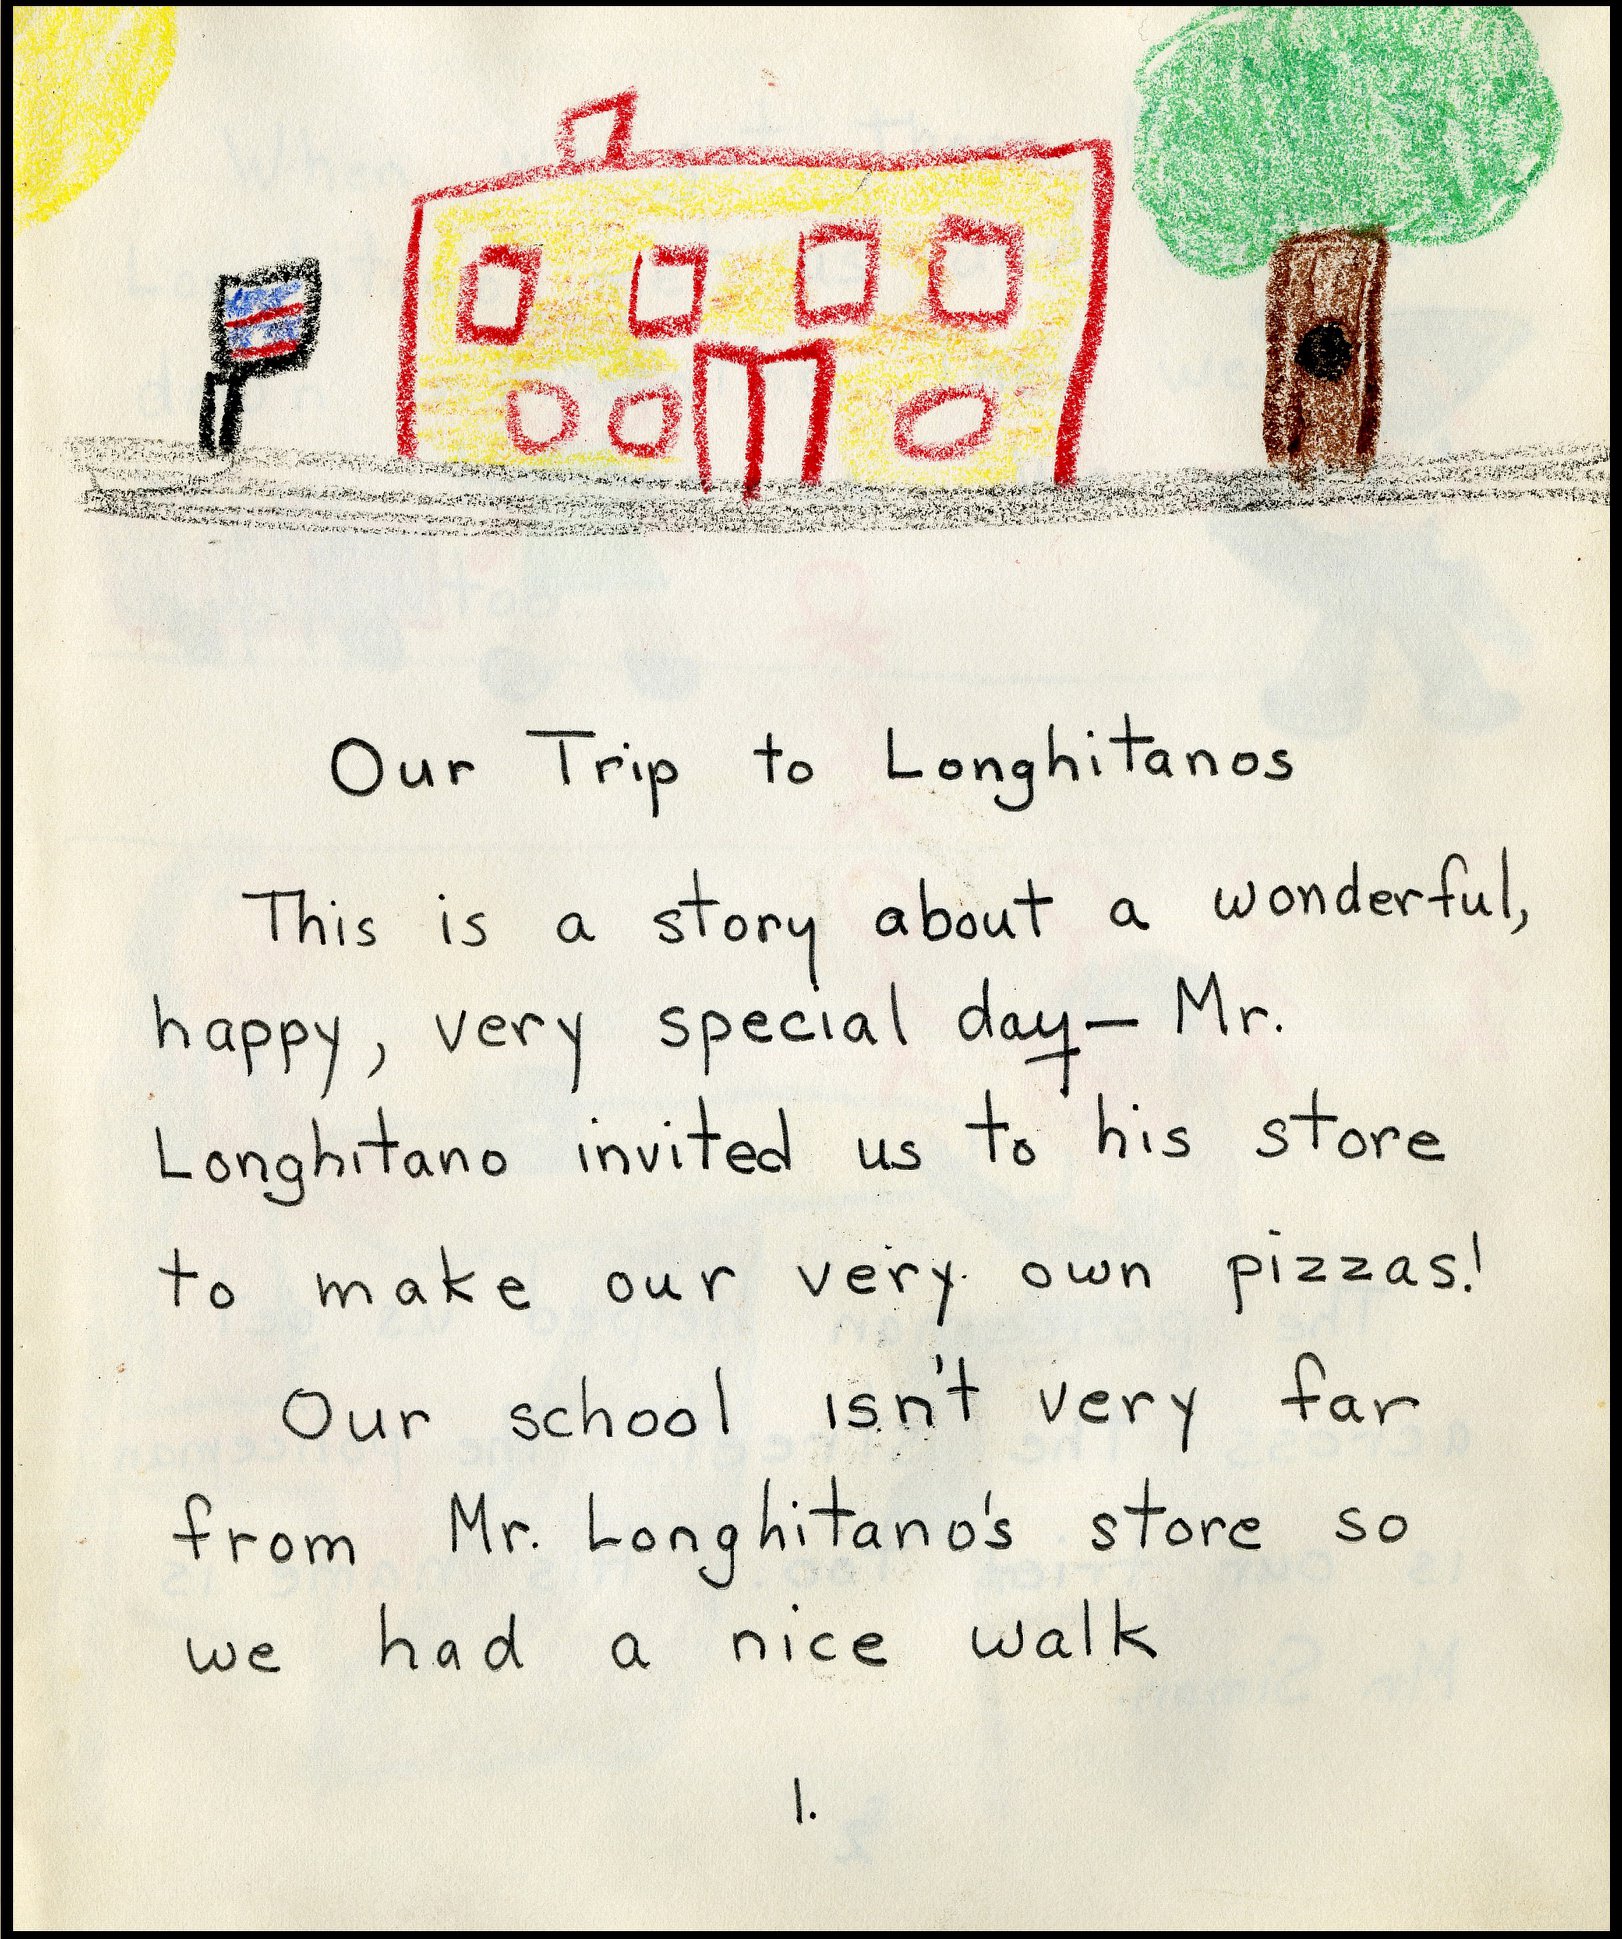 Our Trip to Longhitanos
This is a story about a wonderful,
happy, very special day— Mr.
Longhitano invited us to his store
to make our very own pizzas!
Our school isn't very far
from Mr. Longhitano's store so
we had a nice walk
1.